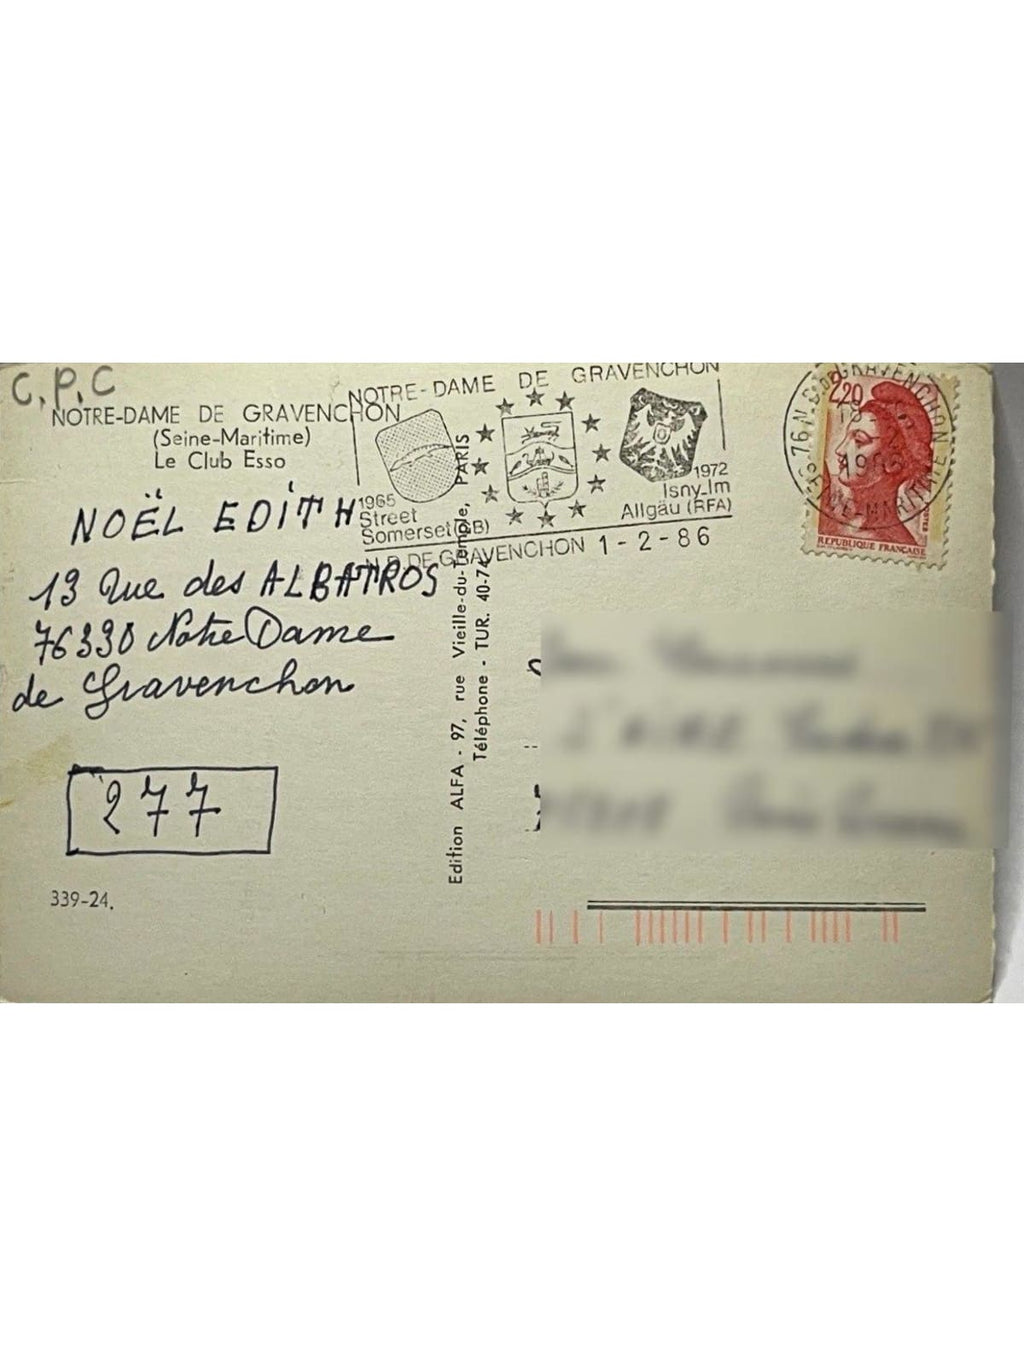 C.P.C
NOTRE-DAME DE GRAVENCHON
(Seine-Maritime)
Le Club Esso
NOTRE-DAME DE GRAVENCHON
1965
Street
Somerset (GB)
1972
Isny-Im
Allgäu (RFA)
N.D. DE GRAVENCHON 1-2-86
GRAVENCHON
76 N
1986
MARITIME
2,20
REPUBLIQUE FRANÇAISE
NOËL EDITH
13 Rue des ALBATROS
76330 Notre Dame
de Gravenchon
277
339-24.
Edition ALFA - 97, rue Vieille-du-Temple, PARIS
Téléphone - TUR. 40-74